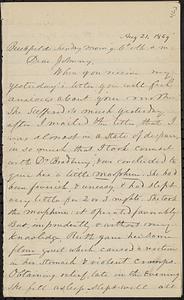 Aug 21. 1869
Dear Johnny,
When you receive my
yesterday's letter you will feel
anxious about your mother
She suffered so much yesterday
after I mailed the letter that I
was almost in a state of despair,
in so much that I took counsel
with Dr and concluded to
give her a little morphine. She had
been feverish & uneasy & had slept
very little for 2 or 3 nights. She took
the morphine & it operated favorably
But, imprudently & without my
knowledge Ruth gave her some
which caused a reaction
in her stomach & violent cramps.
Obtaining relief, late in the Evening
She fell asleep & slept well all